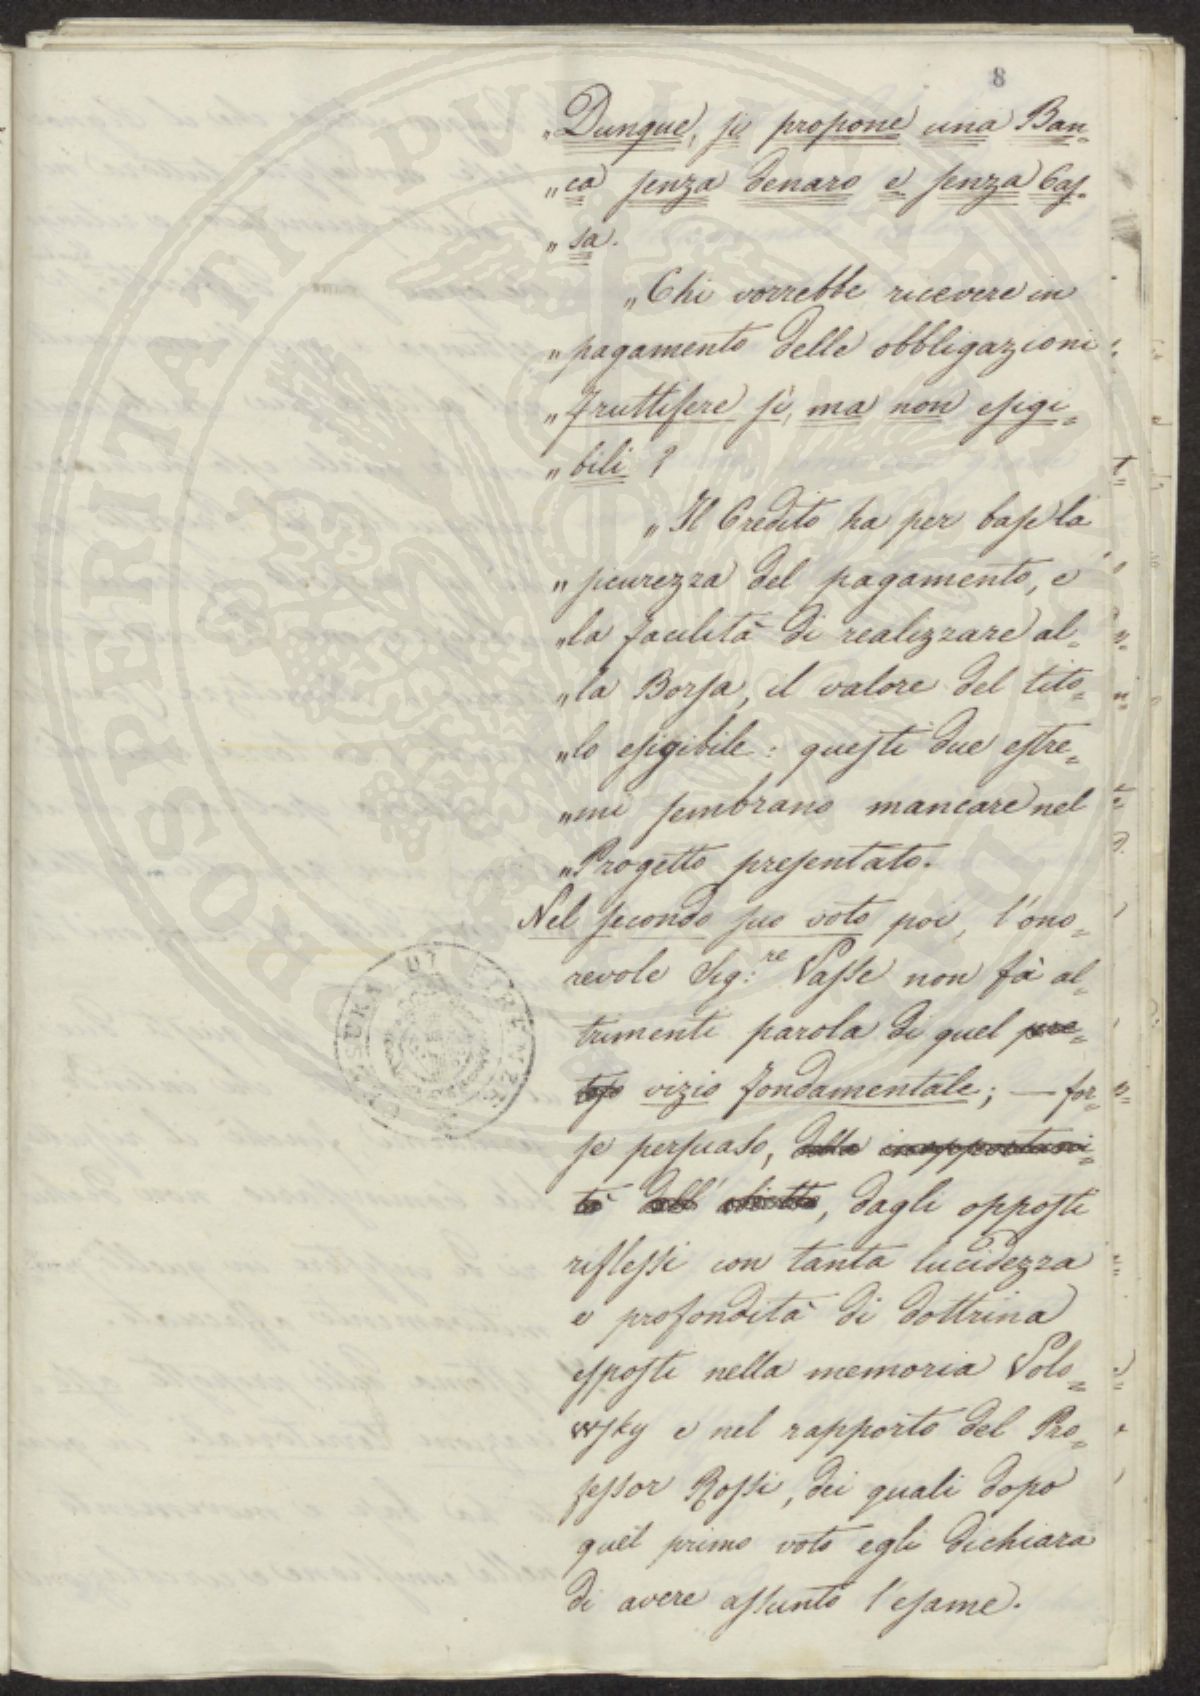 8
„Dunque, si propone una Ban=
„ca senza denaro e senza Cas=
„sa.
„Chi vorrebbe ricevere in
„pagamento delle obbligazioni
„fruttifere sì, ma non esigi=
„bili ?
„Il Credito ha per base la
„sicurezza del pagamento, e
„la facilità di realizzare al=
„la Borsa, il valore del tito=
„lo esigibile: questi due estre=
„mi sembrano mancare nel
„Progetto presentato.
Nel secondo suo voto poi, l'ono=
revole Sig:re Vasse non fà al=
trimenti parola di quel pre=
teso vizio fondamentale; — for=
se persuaso, della inopportuni=
tà dell', dagli opposti
riflessi con tanta lucidezza
e profondità di dottrina
esposti nella memoria Volo=
wsky e nel rapporto del Pro=
fessor Rossi, dei quali dopo
quel primo voto egli dichiara
di avere assunto l'esame.
PROSPERITATI PVBLICAE
CENSURA DI FIRENZE